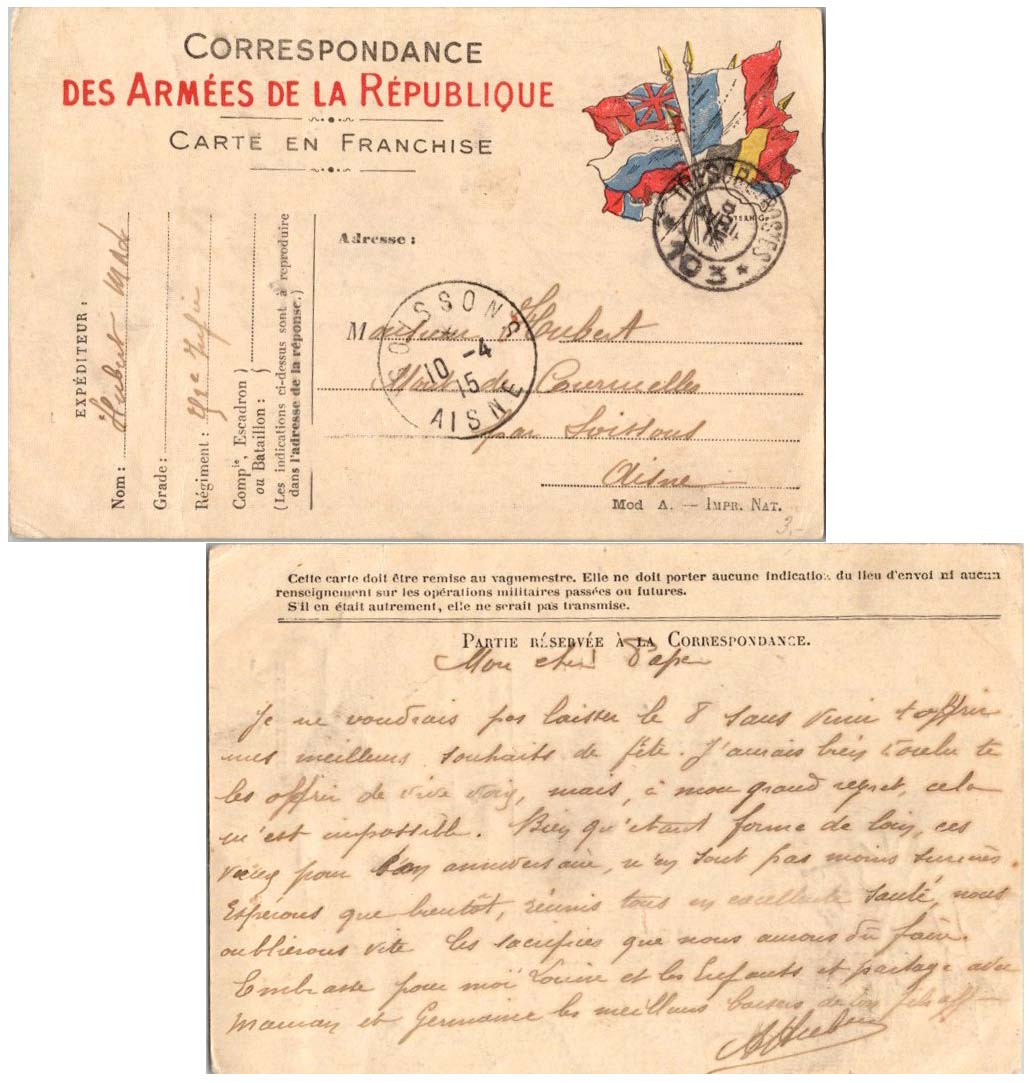 CORRESPONDANCE
DES ARMÉES DE LA RÉPUBLIQUE
CARTE EN FRANCHISE
TRÉSOR ET POSTES
* 103 *
EXPÉDITEUR :
Nom : Hubert
Grade :
Régiment :
Comp^ie, Escadron }
ou Bataillon : }
(Les indications ci-dessus sont à reproduire
dans l'adresse de la réponse.)
Adresse :
SOISSONS
10 -4
15
AISNE
Monsieur Hubert
Mont de Courmelles
par Soissons
Aisne
Mod A. — IMPR. NAT.
3,-
Cette carte doit être remise au vaguemestre. Elle ne doit porter aucune indication du lieu d'envoi ni aucun
renseignement sur les opérations militaires passées ou futures.
S'il en était autrement, elle ne serait pas transmise.
PARTIE RÉSERVÉE À LA CORRESPONDANCE.
Mon cher Papa
Je ne voudrais pas laisser le 8 sans venir t'offrir
mes meilleurs souhaits de fête. J'aurais bien voulu te
les offrir de vive voix, mais, à mon grand regret, cela
m'est impossible. Bien qu'étant formé de loin, ces
vœux pour ton anniversaire, n'en sont pas moins sincères.
Espérons que bientôt, réunis tous en excellente santé, nous
oublierons vite les sacrifices que nous aurons dû faire.
Embrasse pour moi Louise et les Enfants et partage avec
Maman et Germaine les meilleurs baisers de ton